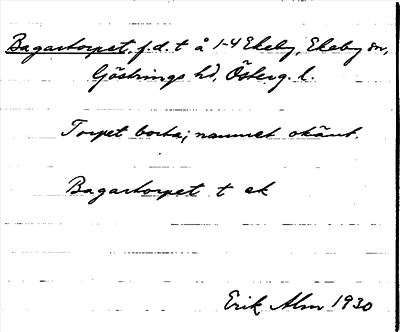 Bagartorpet, f.d. t å 1-4 Ekeby, Ekeby sn,
Göstrings hd, Österg. l.
Torpet borta; namnet okänt.
Bagartorpet t ek
Erik Alm 1930